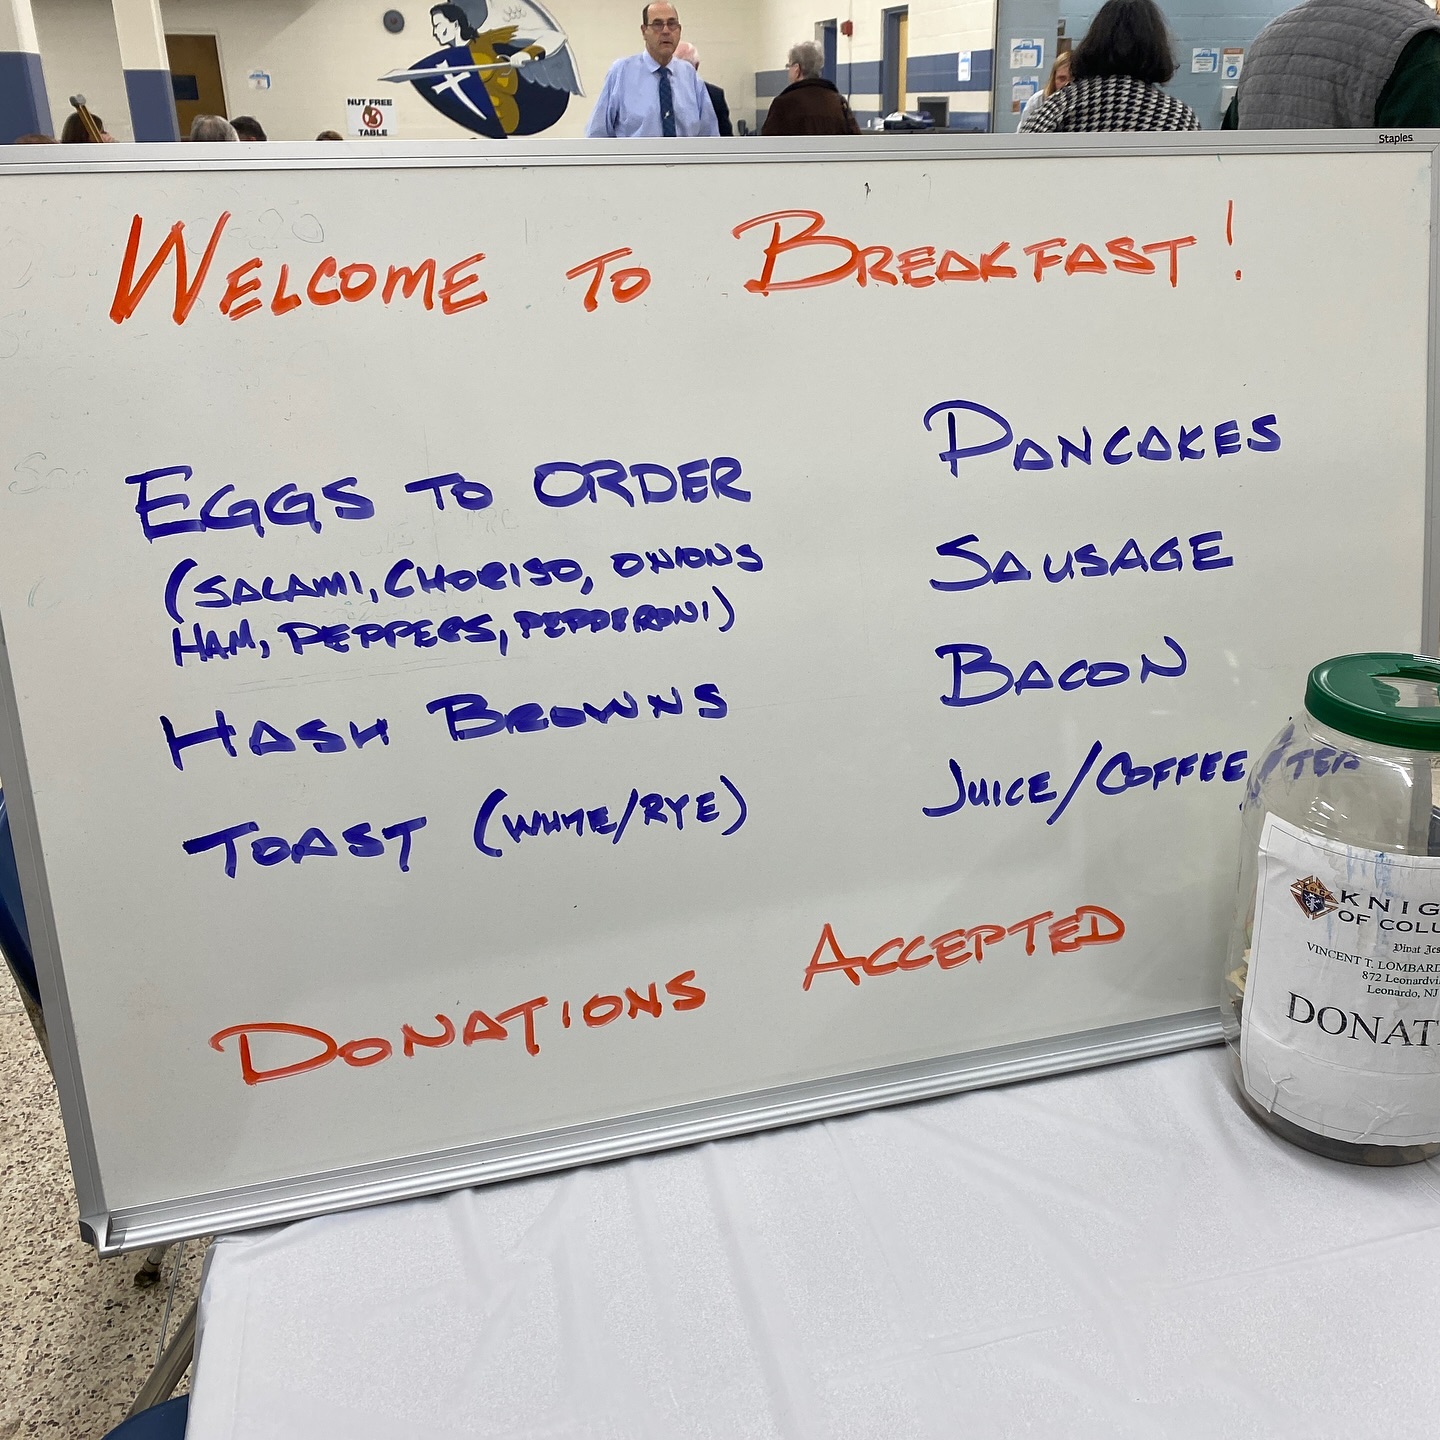 NUT FREE
TABLE
Staples
WELCOME TO BREAKFAST!
EGGS TO ORDER
(SALAMI, CHORISO, ONIONS
HAM, PEPPERS, PEPPERONI)
HASH BROWNS
TOAST (WHITE/RYE)
PANCAKES
SAUSAGE
BACON
JUICE/COFFEE/TEA
DONATIONS ACCEPTED
KNIG
OF COLU
Vivat Jes
VINCENT T. LOMBARD
872 Leonardvi
Leonardo, NJ
DONAT